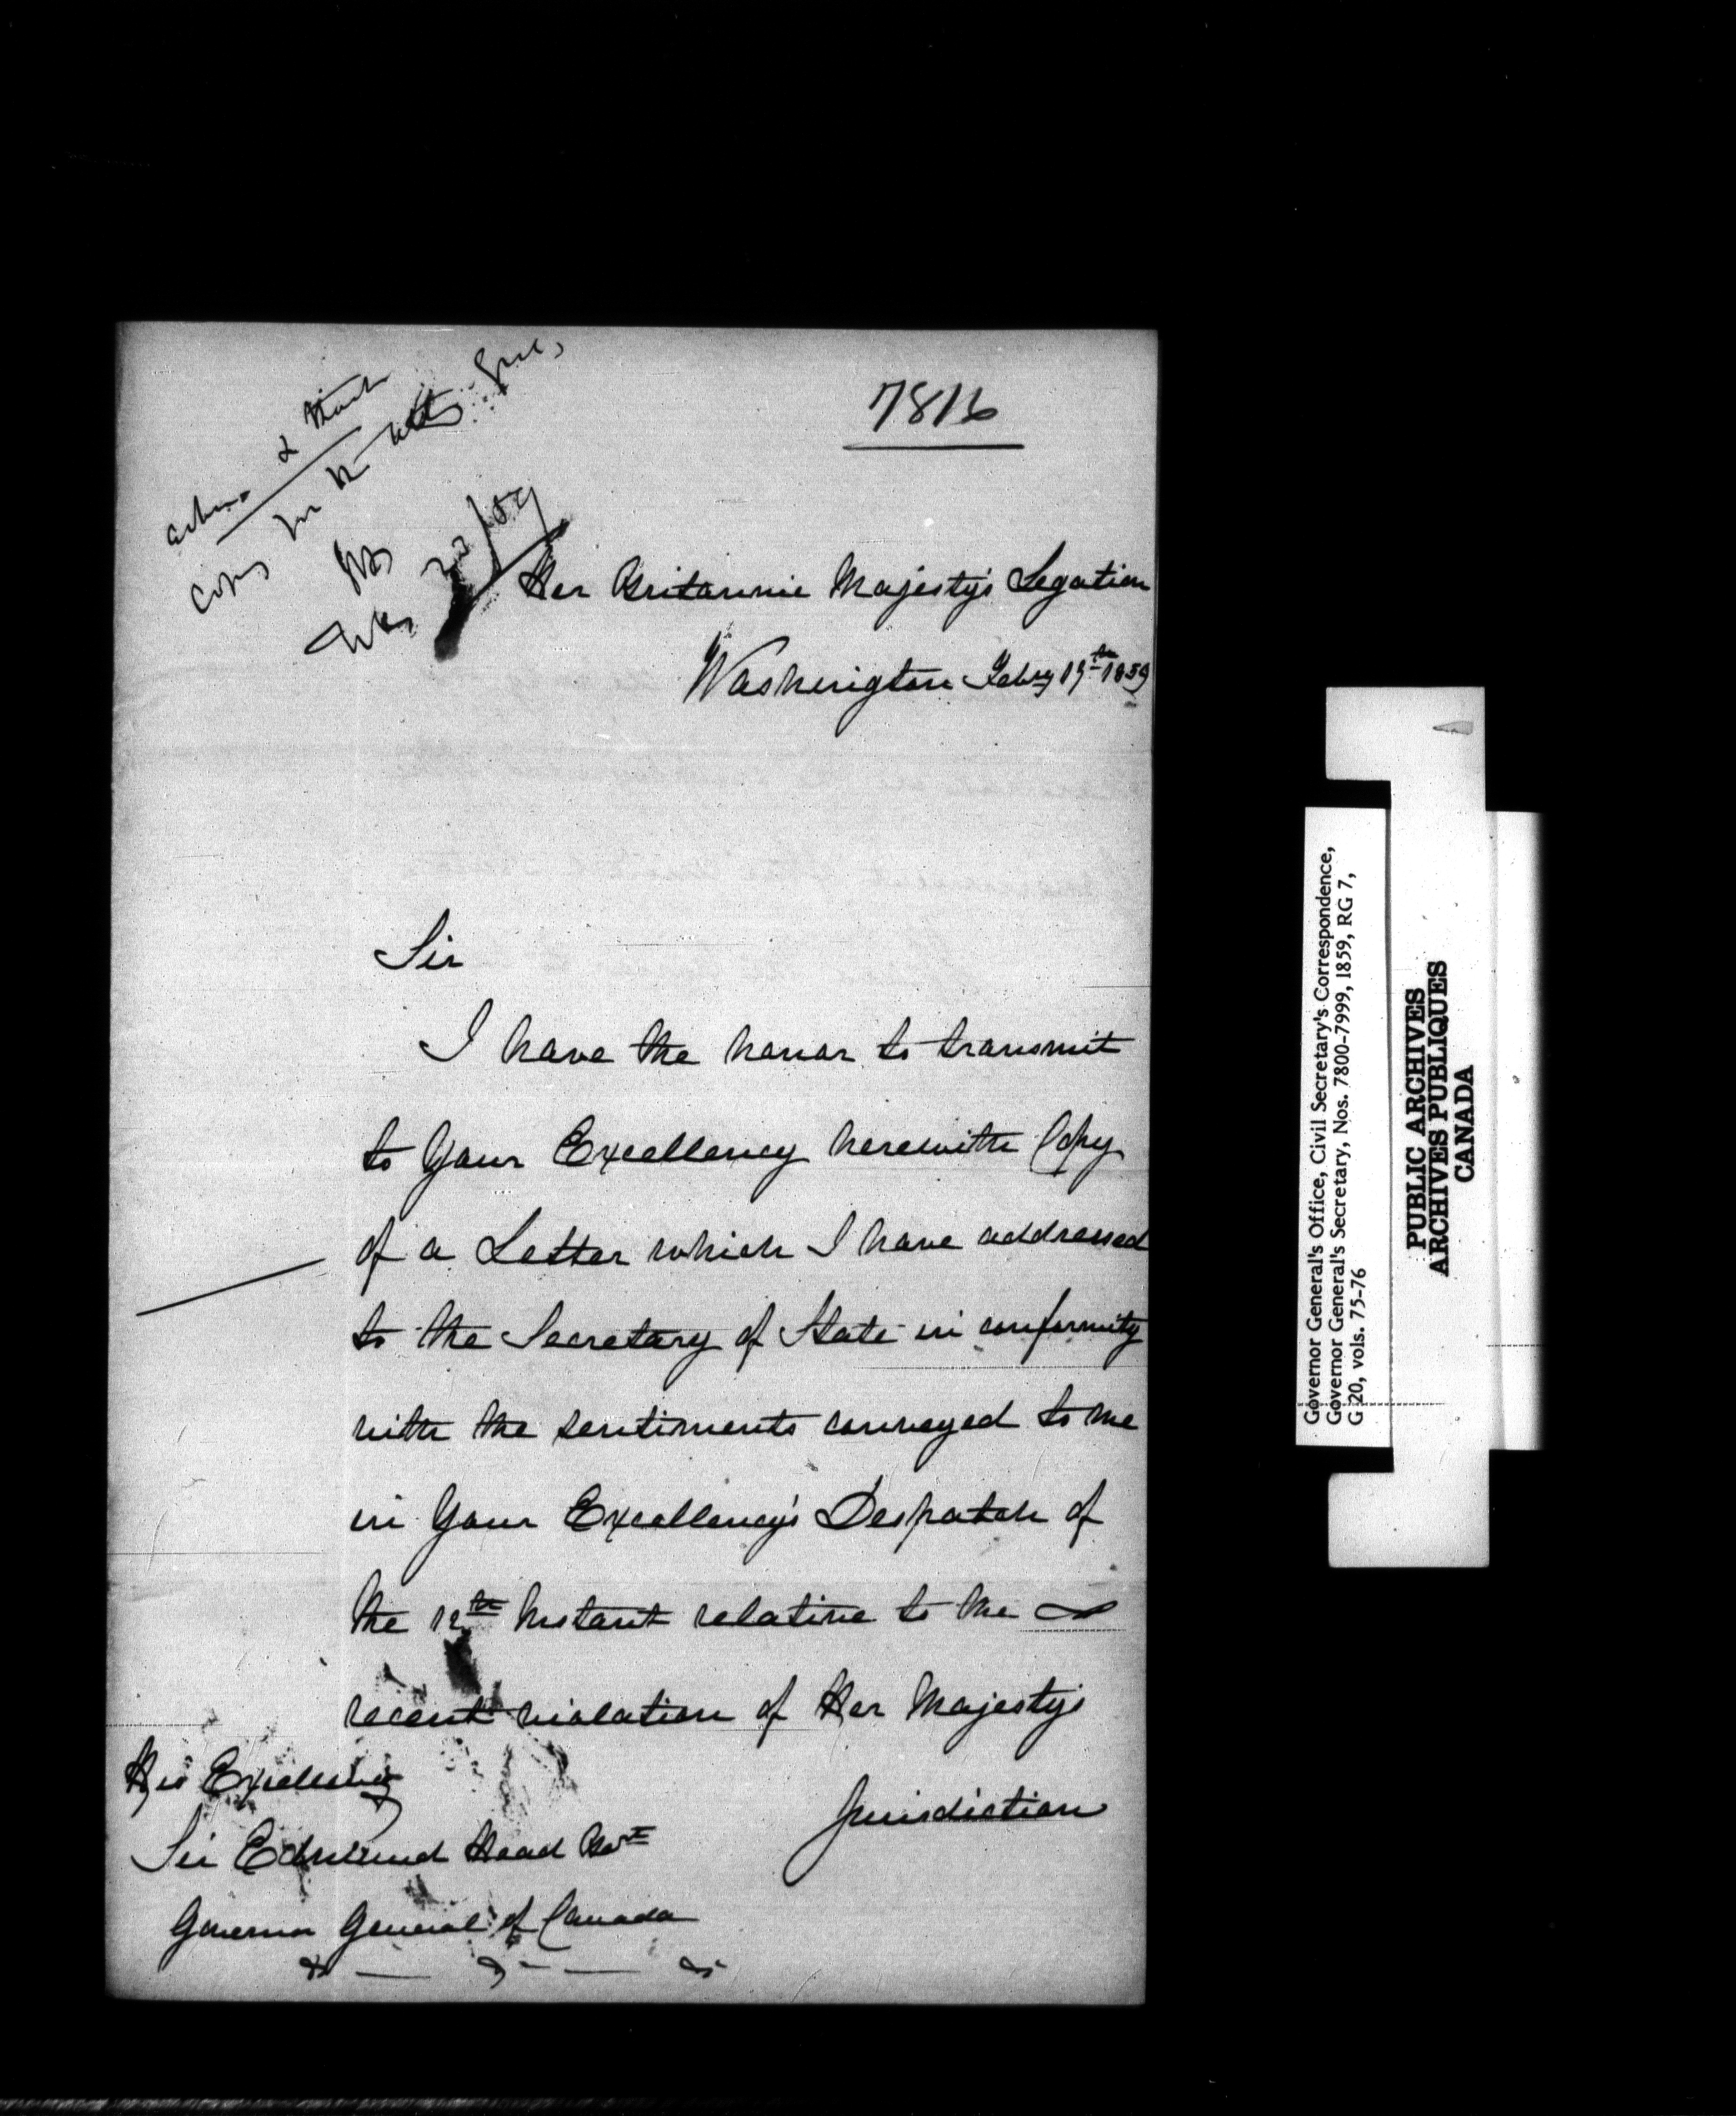 7816
& thank
Copy for
22/59
Her Britannic Majesty's Legation
Washington Feby 19th 1859
Sir
I have the honor to transmit
to Your Excellency herewith Copy
of a Letter which I have addressed
to the Secretary of State in conformity
with the sentiments conveyed to me
in Your Excellency's Despatch of
the 12th Instant relative to the
recent violation of Her Majesty's
Jurisdiction
His Excellency
Sir Edmund Head Bart
Governor General of Canada
Governor General's Office, Civil Secretary's Correspondence,
Governor General's Secretary, Nos. 7800-7999, 1859, RG 7,
G 20, vols. 75-76
PUBLIC ARCHIVES
ARCHIVES PUBLIQUES
CANADA